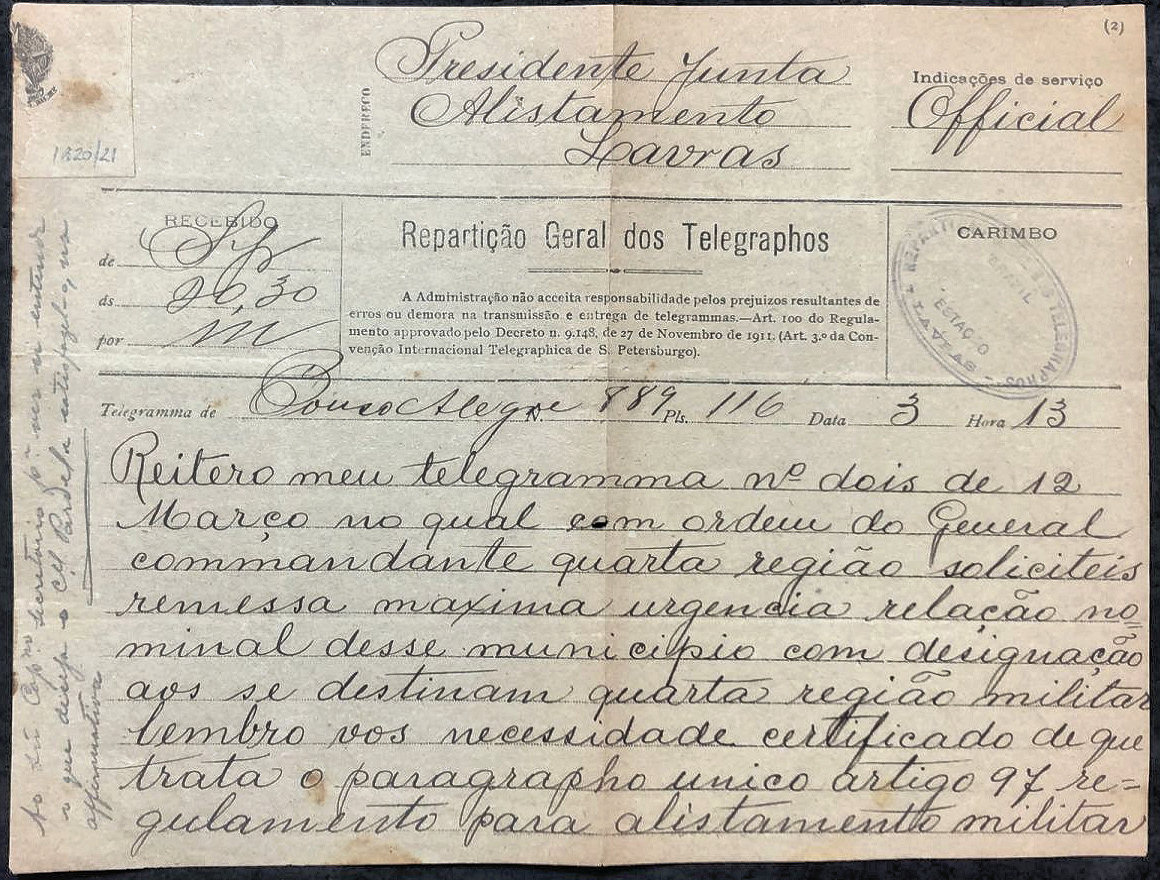 (2)
ENDEREÇO
Presidente Junta
Alistamento
Lavras
Indicações de serviço
Official
1920/21
RECEBIDO
de Sp
ds 20,30
por M
Repartição Geral dos Telegraphos
A Administração não acceita responsabilidade pelos prejuizos resultantes de
erros ou demora na transmissão e entrega de telegrammas.—Art. 100 do Regula-
mento approvado pelo Decreto n. 9.148, de 27 de Novembro de 1911. (Art. 3.º da Con-
venção Internacional Telegraphica de S. Petersburgo).
CARIMBO
ESTAÇÃO
LAVRAS
Telegramma de Pouso Alegre N. 889 Pls. 116 Data 3 Hora 13
Reitero meu telegramma nº dois de 12
Março no qual com ordem do General
commandante quarta região soliciteis
remessa maxima urgencia relação no=
minal desse municipio com designação
aos se destinam quarta região militar
lembro vos necessidade certificado de que
trata o paragrapho unico artigo 97 re=
gulamento para alistamento militar
Ao Snr Capm secretario pª ver
o que deseja o
affirmativa